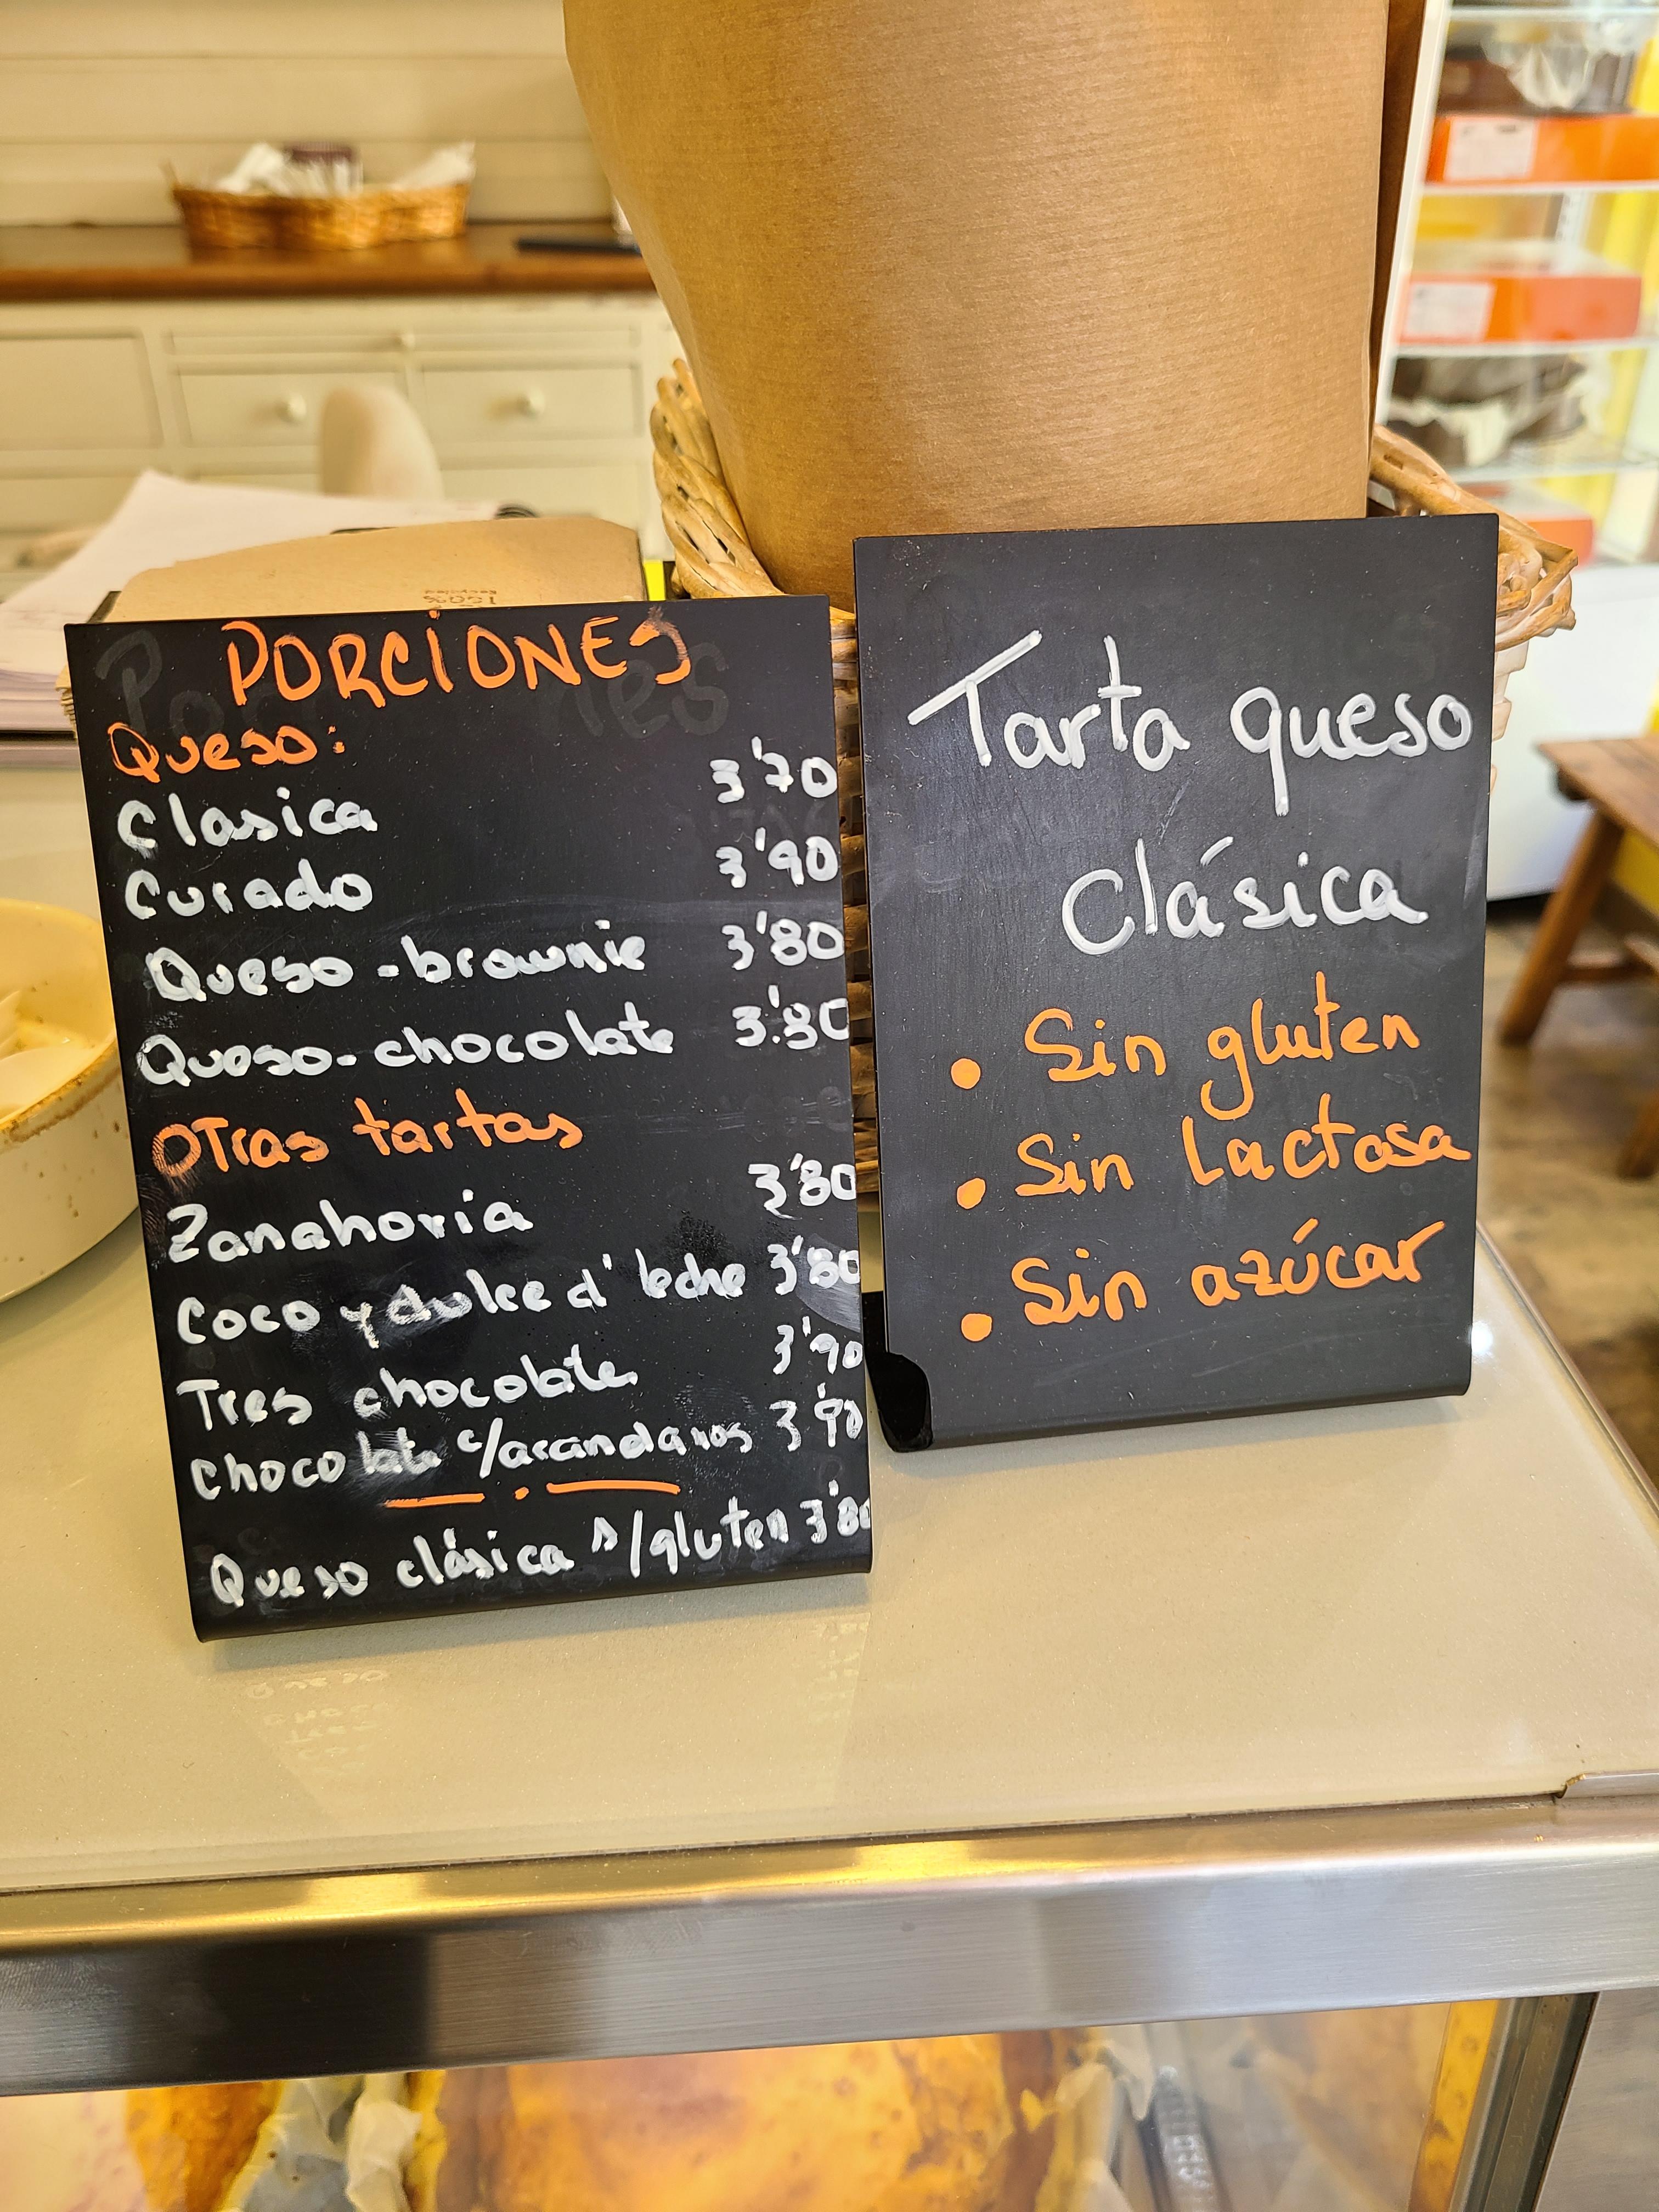 PORCIONES
Queso:
Clasica 3'70
Curado 3'90
Queso-brownie 3'80
Queso-chocolate 3'80
Otras tartas
Zanahoria 3'80
Coco y dulce d' leche 3'80
Tres chocolate 3'90
Chocolate c/arandanos 3'90
Queso clásica s/gluten 3'80
Tarta queso
Clásica
• Sin gluten
• Sin Lactosa
• Sin azúcar
100%
Recycled